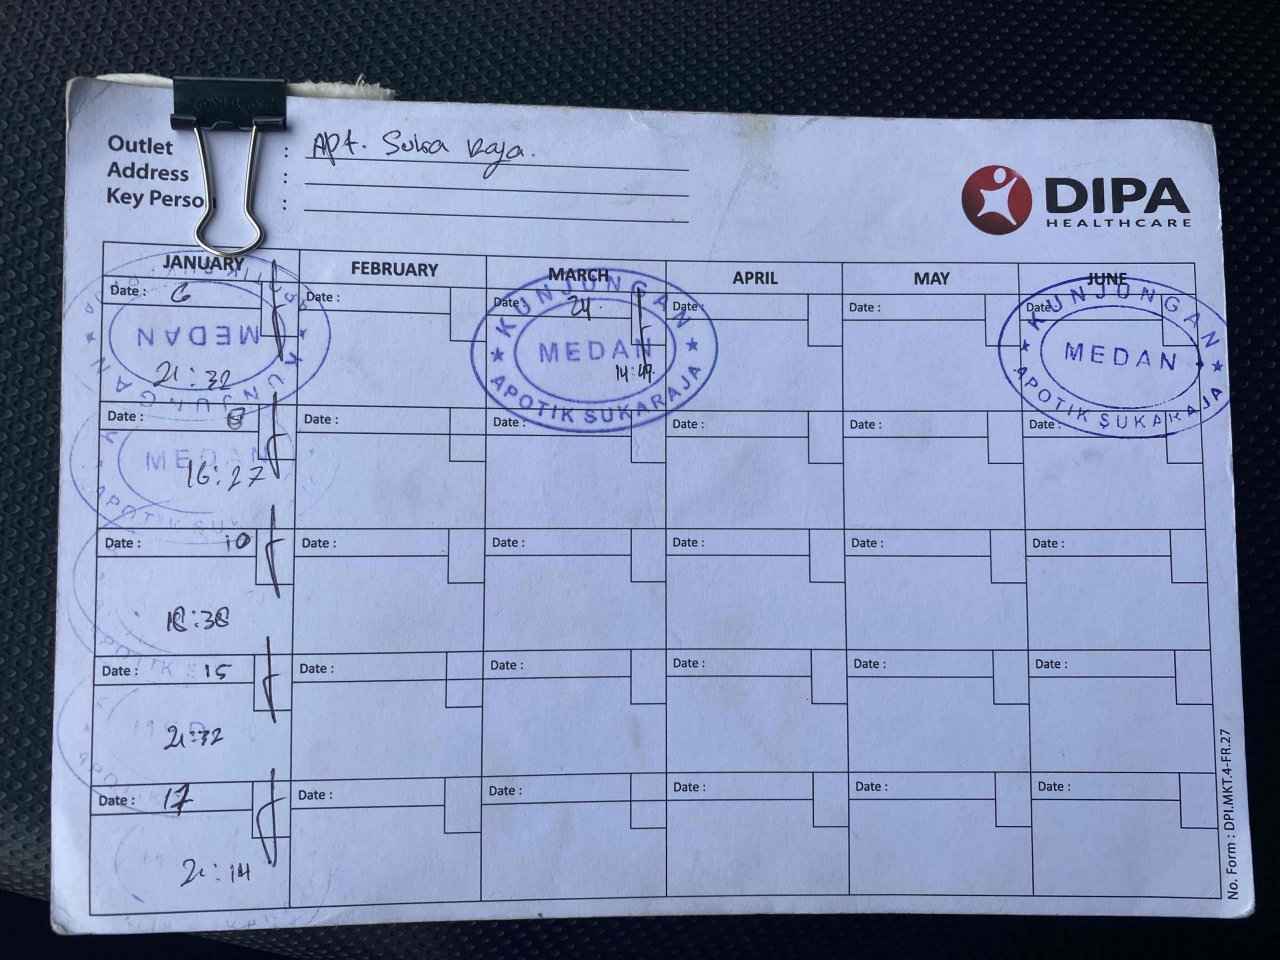 Outlet : Apt. Suka Raja.
Address :
Key Person :
DIPA
HEALTHCARE
JANUARY FEBRUARY MARCH APRIL MAY JUNE
Date : 6 Date : Date : 24 Date : Date : Date :
21:32 14:49
KUNJUNGAN
MEDAN
KUNJUNGAN
MEDAN
APOTIK SUKARAJA
KUNJUNGAN
MEDAN
APOTIK SUKARAJA
Date : 8 Date : Date : Date : Date : Date :
16:27
MEDAN
APOTIK
Date : 10 Date : Date : Date : Date : Date :
18:38
Date : 15 Date : Date : Date : Date : Date :
21:32
Date : 17 Date : Date : Date : Date : Date :
21:14
No. Form : DPI.MKT.4-FR.27